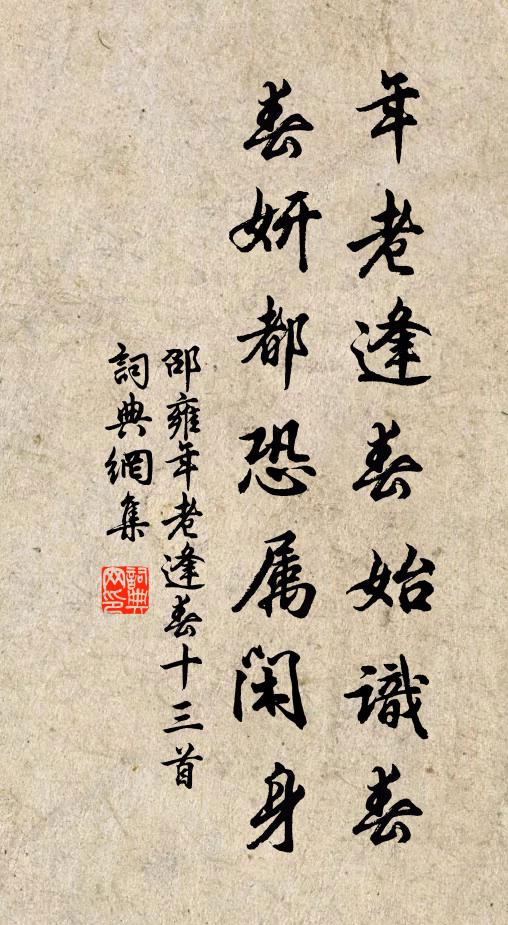 年老逢春始識春
春妍都恐属閑身
邵雍年老逢春十三首
詞典網集
詞典網印